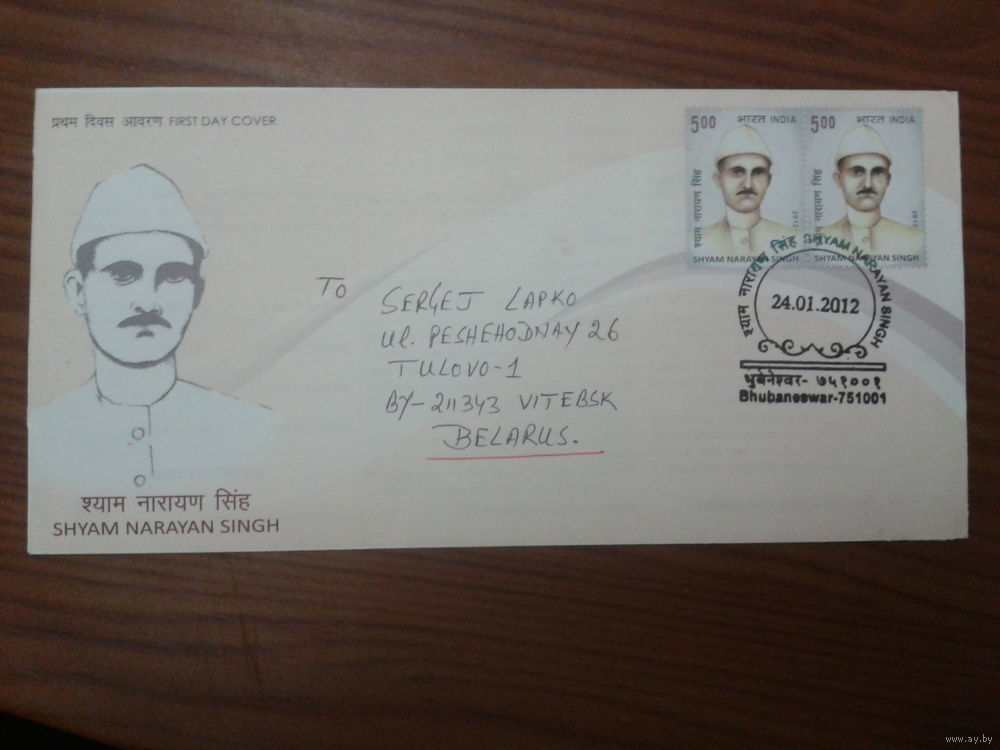 प्रथम दिवस आवरण FIRST DAY COVER
500 भारत INDIA
श्याम नारायण सिंह
2012
SHYAM NARAYAN SINGH
500 भारत INDIA
श्याम नारायण सिंह
2012
SHYAM NARAYAN SINGH
श्याम नारायण सिंह SHYAM NARAYAN SINGH
24.01.2012
भुबनेश्वर- ७५१००१
Bhubaneswar-751001
TO
SERGEJ LAPKO
Ul. PESHEHODNAY 26
TULOVO-1
BY-211343 VITEBSK
BELARUS.
श्याम नारायण सिंह
SHYAM NARAYAN SINGH
www.ay.by